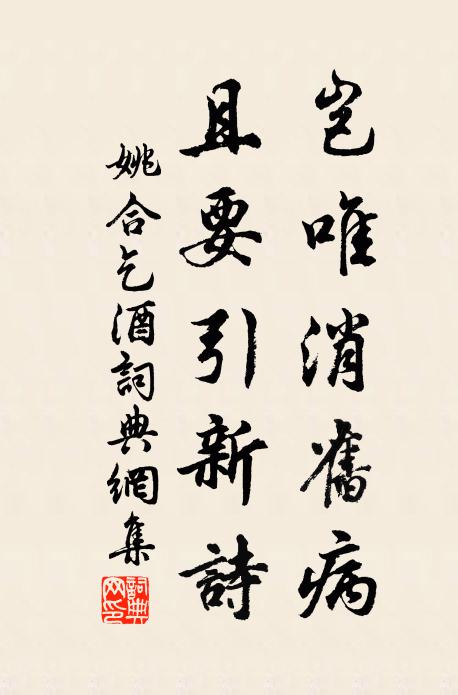 豈唯消舊病
且要引新詩
姚合乞酒詞典網集
詞典网印